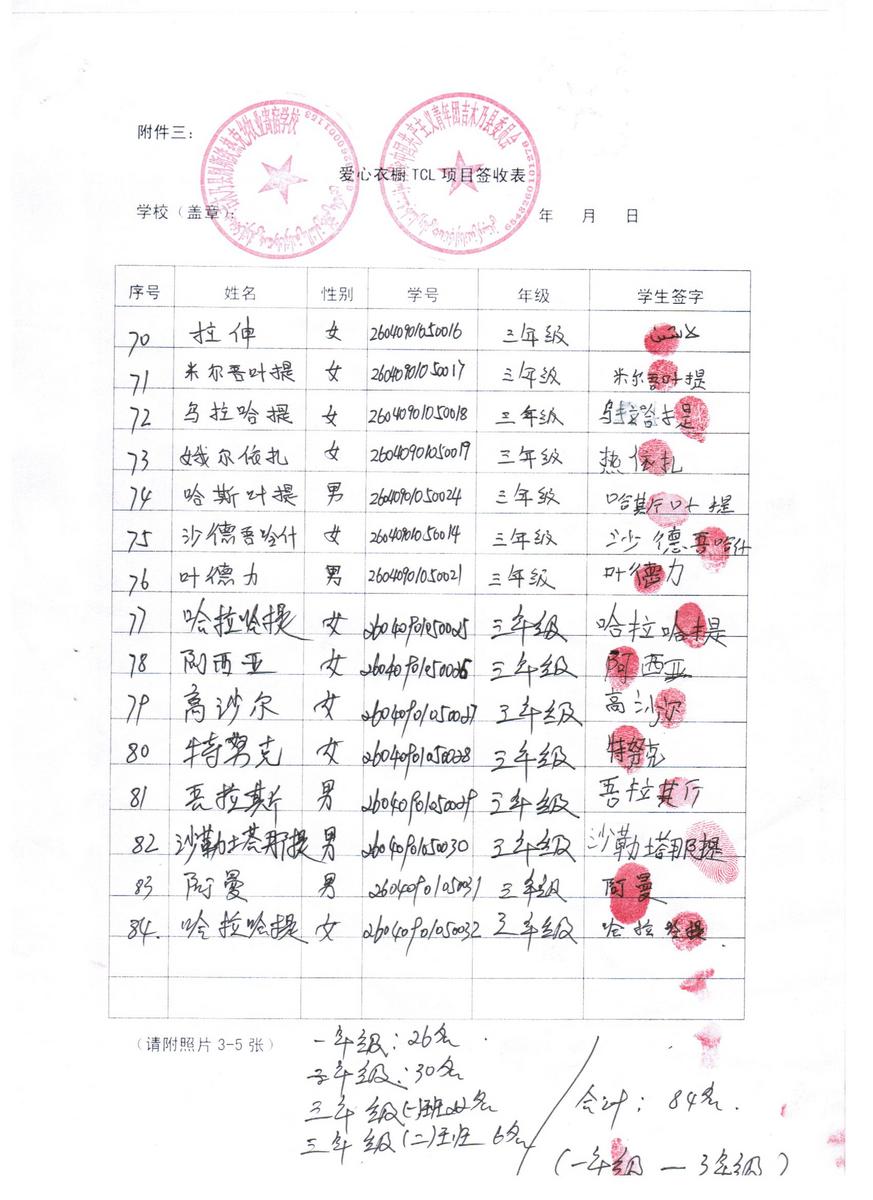 附件三：
爱心衣橱 TCL 项目签收表
学校（盖章）： 年 月 日
序号 姓名 性别 学号 年级 学生签字
70 拉伸 女 26040901050016 三年级
71 米尔吾叶提 女 26040901050017 三年级 米尔吾叶提
72 乌拉哈提 女 26040901050018 三年级 乌拉哈提
73 娥尔依扎 女 26040901050019 三年级 热依扎
74 哈斯叶提 男 26040901050024 三年级 哈其斤叶提
75 沙德吾哈什 女 26040901050014 三年级 沙德吾哈什
76 叶德力 男 26040901050021 三年级 叶德力
77 哈拉哈提 女 26040901050025 三年级 哈拉哈提
78 阿西亚 女 26040901050026 三年级 阿西亚
79 高沙尔 女 26040901050027 三年级 高沙尔
80 特努克 女 26040901050028 三年级 特努克
81 吾拉斯 男 26040901050029 三年级 吾拉其斤
82 沙勒塔那提 男 26040901050030 三年级 沙勒塔那提
83 阿曼 男 26040901050031 三年级 阿曼
84. 哈拉哈提 女 26040901050032 三年级 哈拉哈提
（请附照片 3-5 张）
一年级：26名
二年级：30名
三年级(一)班22名
三年级(二)班 6名
合计：84名.
(一年级 — 3年级)